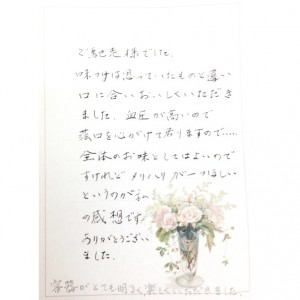 ご馳走様でした。
味つけは思っていたものと違い
口に合いおいしくいただき
ました。血圧が高いので
薄口を心がけて居りますので……
全体のお味としてはよいので
すけれどメリハリが一つほしい
というのが私
の感想です
ありがとうござい
ました。
容器がとても明るく楽しくいただきました。